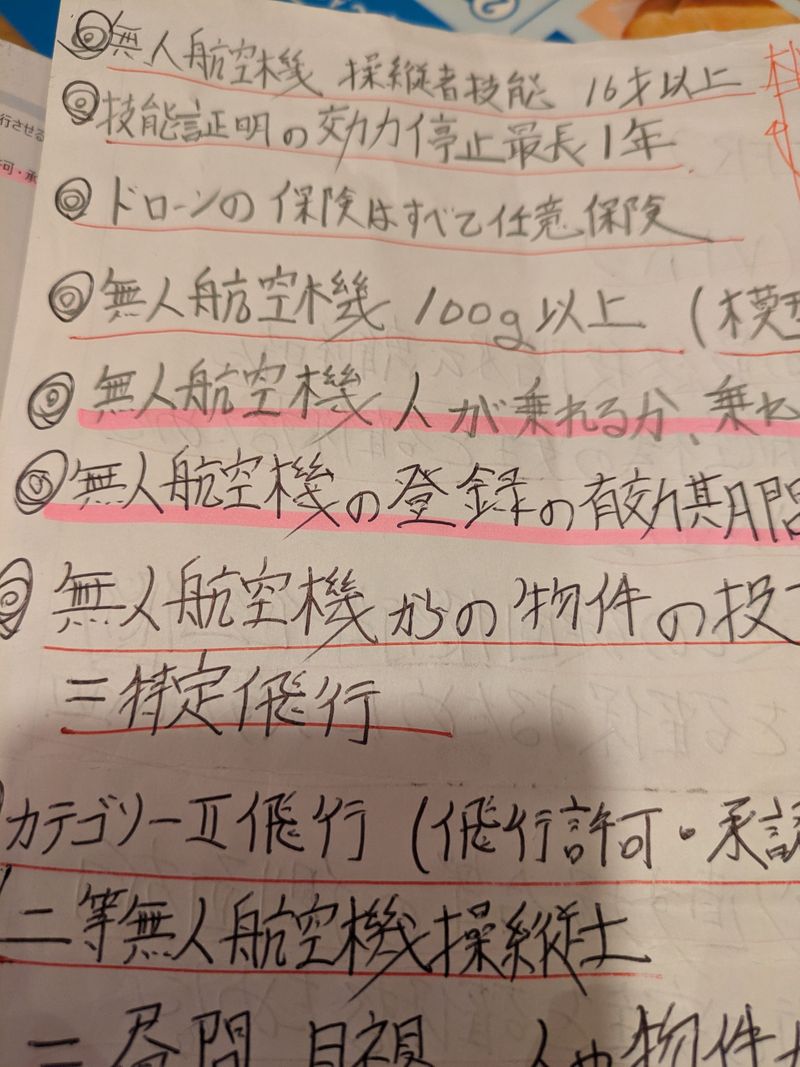 ◎無人航空機 操縦者技能 16才以上
◎技能証明の効力停止最長1年
◎ドローンの保険はすべて任意保険
◎無人航空機 100g以上 (模型
◎無人航空機 人が乗れるか、乗れ
◎無人航空機の登録の有効期間
◎無人航空機からの物件の投下
=特定飛行
カテゴリーⅡ飛行 (飛行許可・承認
二等無人航空機操縦士
=昼間 目視 人や物件
行させる
可・承